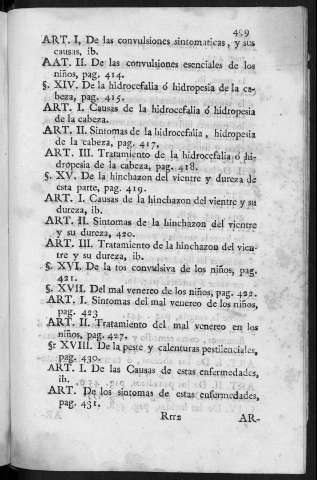 499
ART. I, De las convulsiones sintomaticas, y sus
causas, ib.
AAT. II. De las convulsiones esenciales de los
niños, pag. 414.
§. XIV. De la hidrocefalia ó hidropesia de la ca-
beza, pag. 415.
ART. I. Causas de la hidrocefalia ó hidropesia
de la cabeza.
ART. II. Sintomas de la hidrocefalia, hidropesia
de la cabeza, pag. 417.
ART. III. Tratamiento de la hidrocefalia ó hi-
dropesia de la cabeza, pag. 418.
§. XV. De la hinchazon del vientre y dureza de
esta parte, pag. 419.
ART. I. Causas de la hinchazon del vientre y su
dureza, ib.
ART. II. Sintomas de la hinchazon del vientre
y su dureza, 420.
ART. III. Tratamiento de la hinchazon del vien-
tre y su dureza, ib.
§. XVI. De la tos convulsiva de los niños, pag.
421.
§. XVII. Del mal venereo de los niños, pag. 422.
ART. I. Sintomas del mal venereo de los niños,
pag. 423
ART. II. Tratamiento del mal venereo en los
niños, pag. 427.
§. XVIII. De la peste y calenturas pestilenciales,
pag. 430.
ART. I. De las Causas de estas enfermedades,
ib.
ART. De los sintomas de estas enfermedades,
pag. 431.
Rrr2 AR-